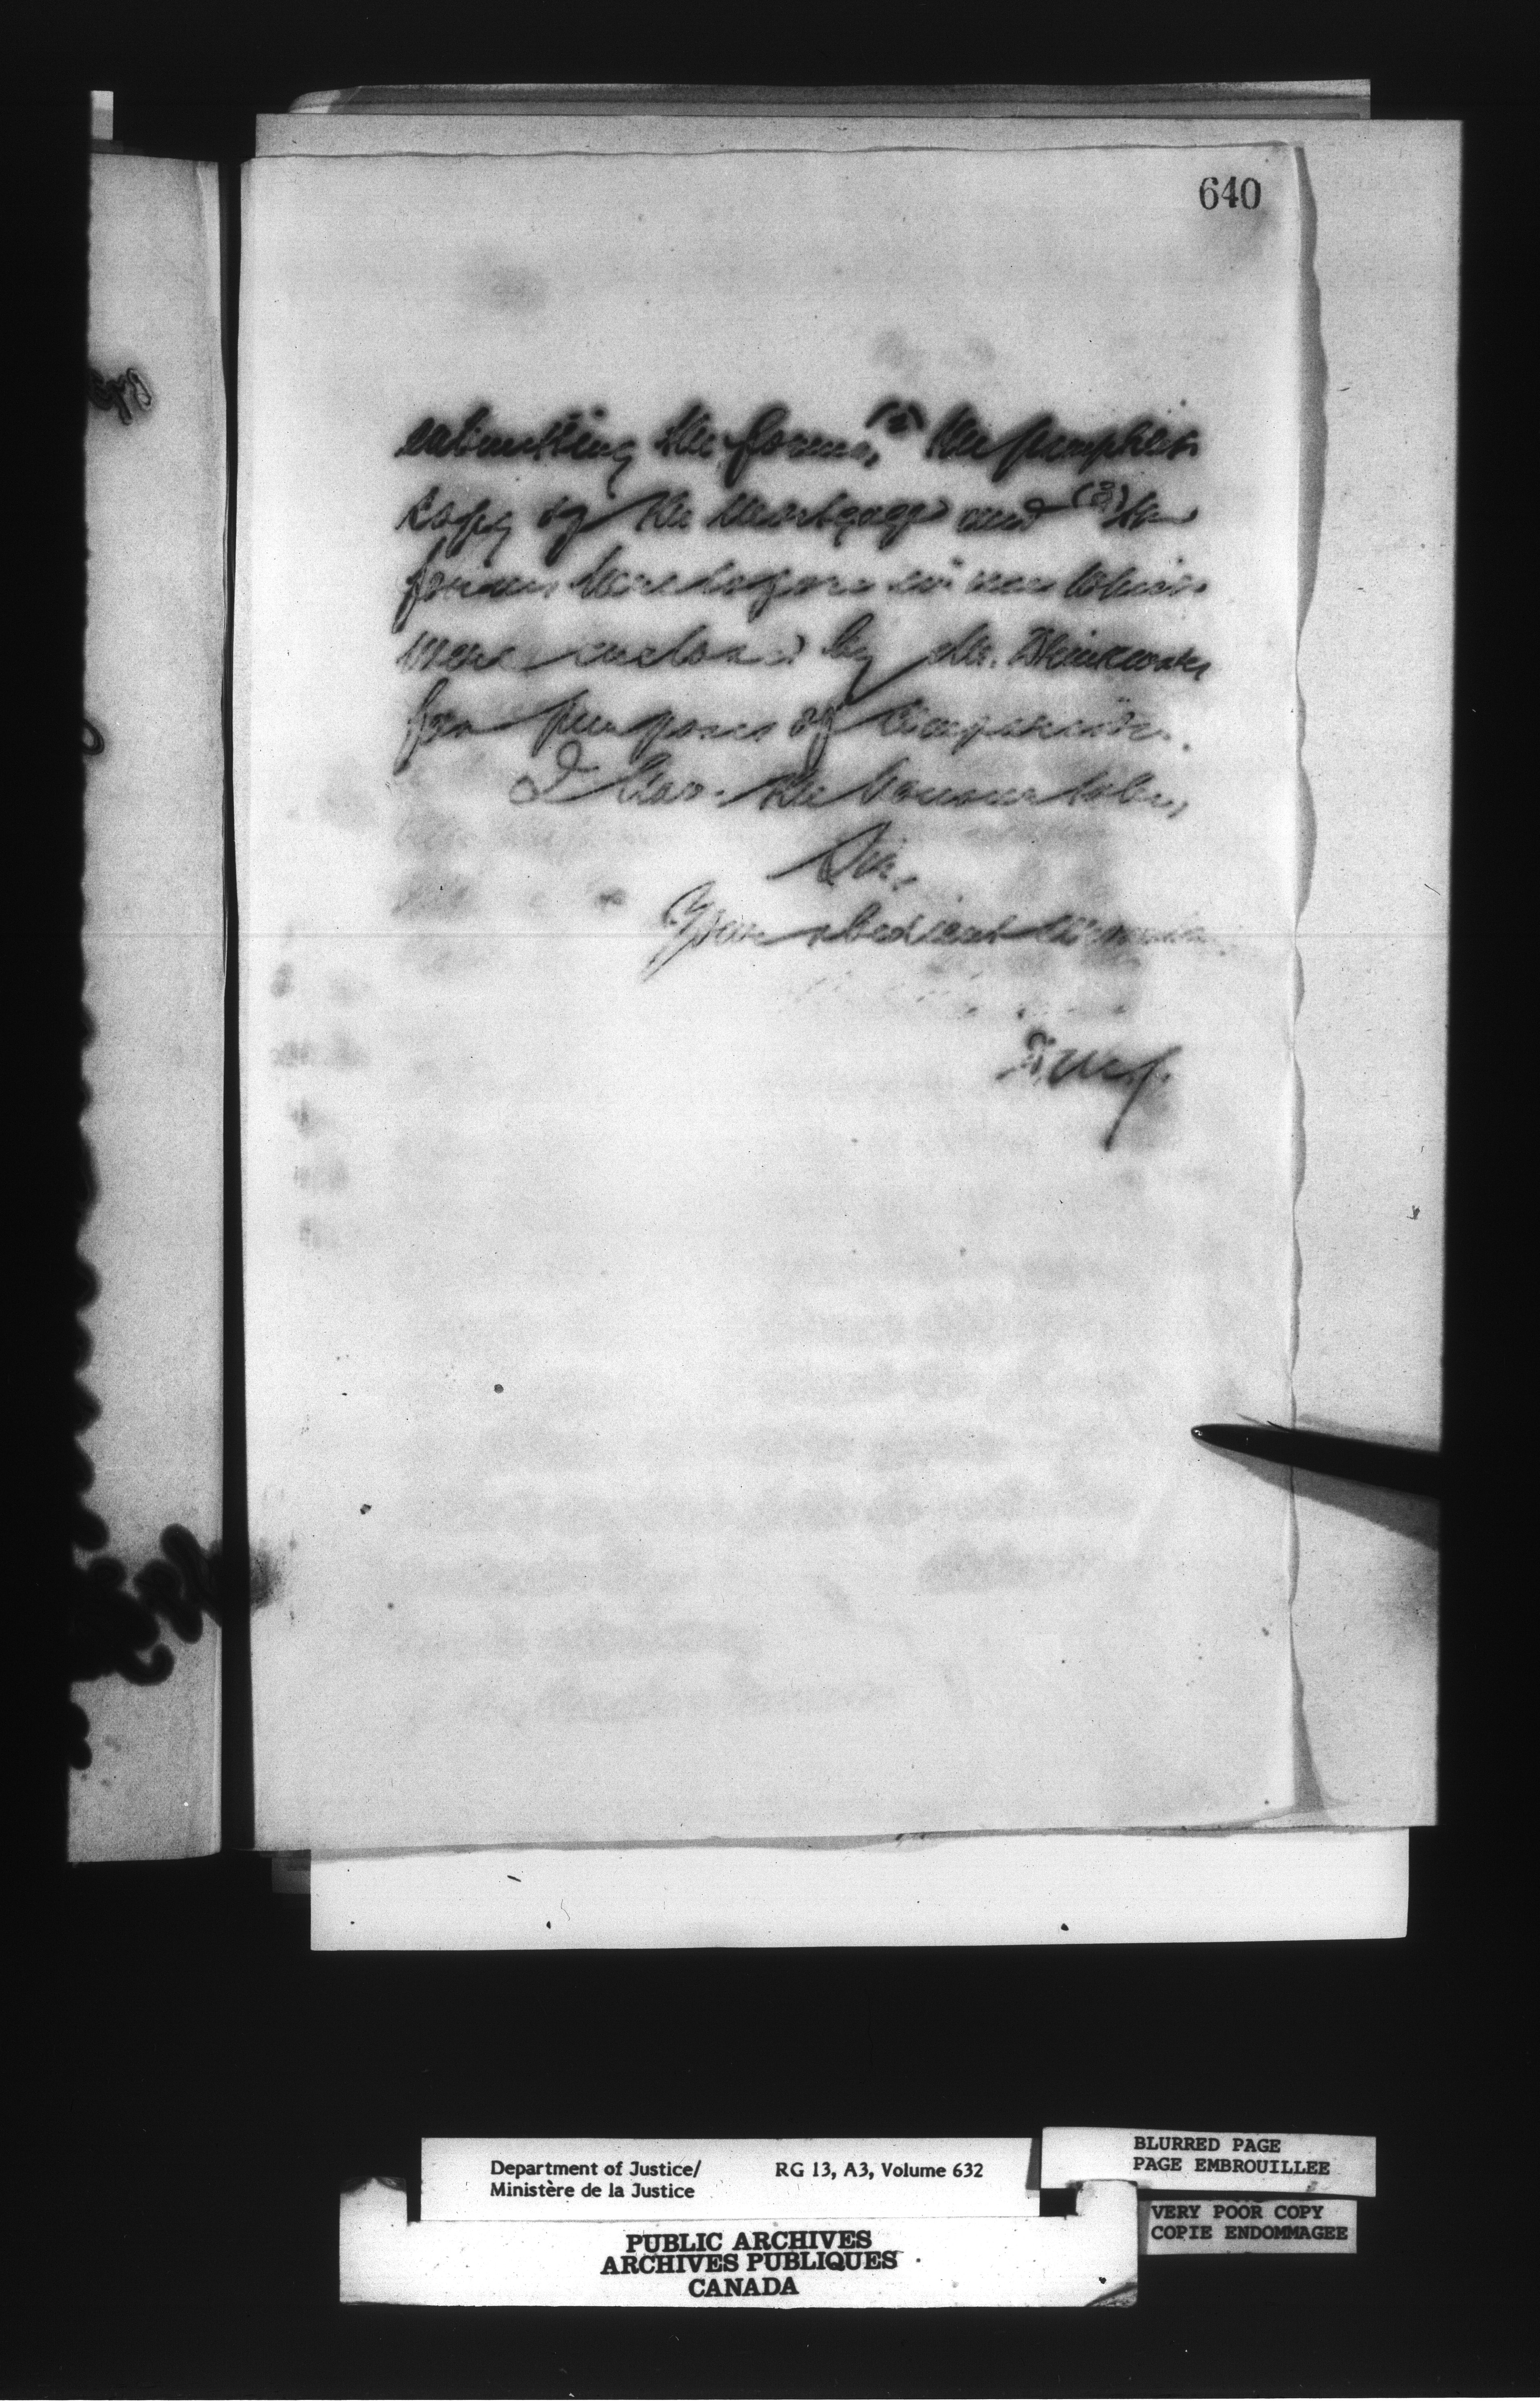 640
submitting the forms, (2) the pamphlet
copy of the mortgage and (3) the
forms heretofore in use which
were enclosed by Mr.
for purposes of comparison.
I have the honour to be,
Sir,
Your obedient servant
Department of Justice/ RG 13, A3, Volume 632
Ministère de la Justice
BLURRED PAGE
PAGE EMBROUILLEE
VERY POOR COPY
COPIE ENDOMMAGEE
PUBLIC ARCHIVES
ARCHIVES PUBLIQUES
CANADA